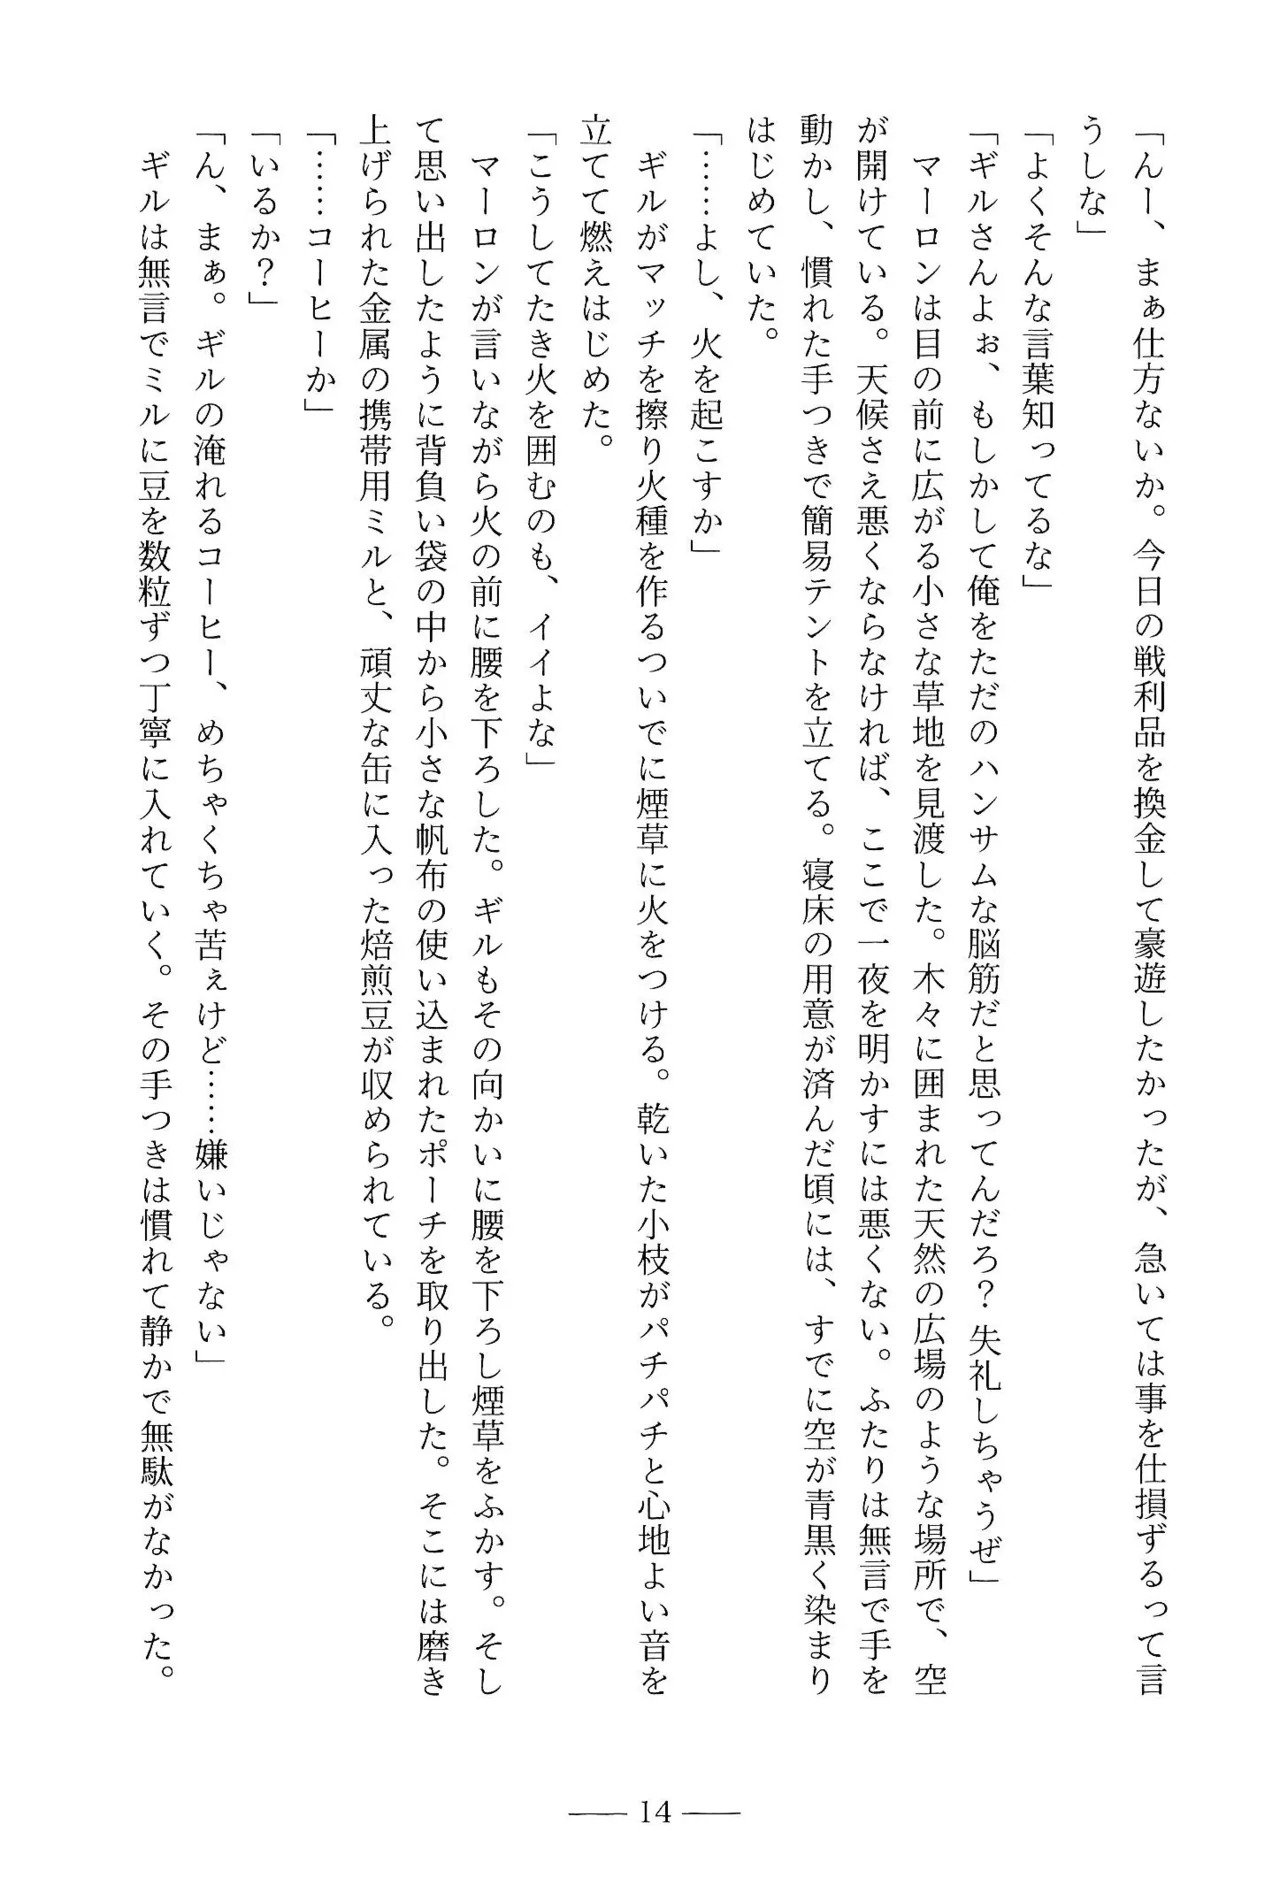 「んー、まぁ仕方ないか。今日の戦利品を換金して豪遊したかったが、急いては事を仕損ずるって言
うしな」
「よくそんな言葉知ってるな」
「ギルさんよぉ、もしかして俺をただのハンサムな脳筋だと思ってんだろ？ 失礼しちゃうぜ」
　マーロンは目の前に広がる小さな草地を見渡した。木々に囲まれた天然の広場のような場所で、空
が開けている。天候さえ悪くならなければ、ここで一夜を明かすには悪くない。ふたりは無言で手を
動かし、慣れた手つきで簡易テントを立てる。寝床の用意が済んだ頃には、すでに空が青黒く染まり
はじめていた。
「……よし、火を起こすか」
　ギルがマッチを擦り火種を作るついでに煙草に火をつける。乾いた小枝がパチパチと心地よい音を
立てて燃えはじめた。
「こうしてたき火を囲むのも、イイよな」
　マーロンが言いながら火の前に腰を下ろした。ギルもその向かいに腰を下ろし煙草をふかす。そし
て思い出したように背負い袋の中から小さな帆布の使い込まれたポーチを取り出した。そこには磨き
上げられた金属の携帯用ミルと、頑丈な缶に入った焙煎豆が収められている。
「……コーヒーか」
「いるか？」
「ん、まぁ。ギルの淹れるコーヒー、めちゃくちゃ苦ぇけど……嫌いじゃない」
　ギルは無言でミルに豆を数粒ずつ丁寧に入れていく。その手つきは慣れて静かで無駄がなかった。
― 14 ―